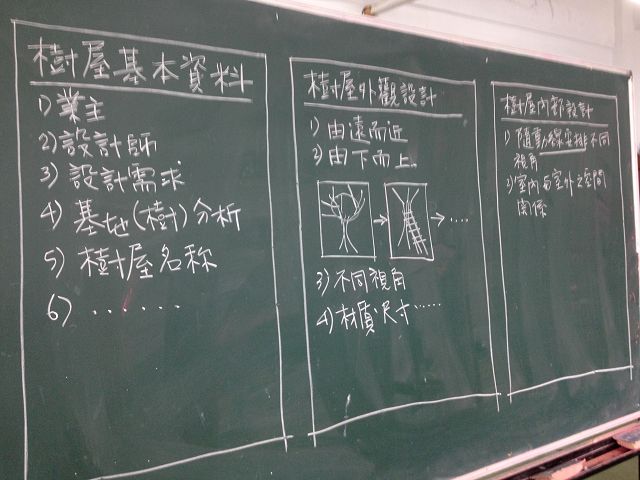 樹屋基本資料
1) 業主
2) 設計師
3) 設計需求
4) 基地(樹)分析
5) 樹屋名称
6) ......
樹屋外觀設計
1) 由遠而近
2) 由下而上
→ → ....
3) 不同視角
4) 材質尺寸......
樹屋內部設計
1) 隨動線安排不同
視角
2) 室內与室外之空間
関係